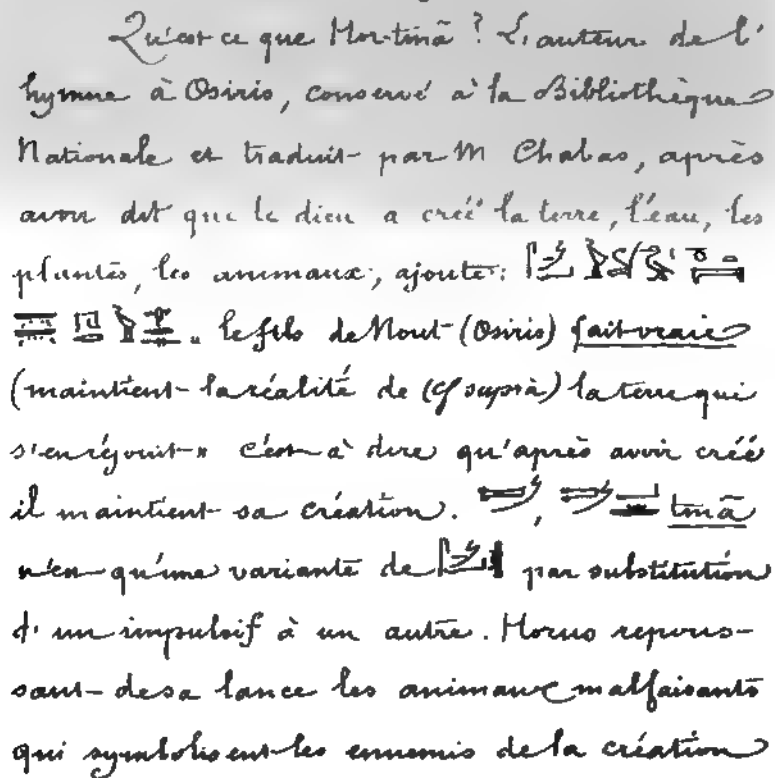 Qu'est ce que Hor-tmā ? L'auteur de l'
hymne à Osiris, conservé à la Bibliothèque
Nationale et traduit par M Chabas, après
avoir dit que le dieu a créé la terre, l'eau, les
plantes, les animaux, ajoute :
le fils de Nout (Osiris) fait vraie
(maintient la réalité de (cf suprà) la terre qui
s'en réjouit » C'est à dire qu'après avoir créé
il maintient sa création. , tmā
n'en qu'une variante de par substitution
d'un impulsif à un autre. Horus repous-
sant de sa lance les animaux malfaisants
qui symbolisent les ennemis de la création